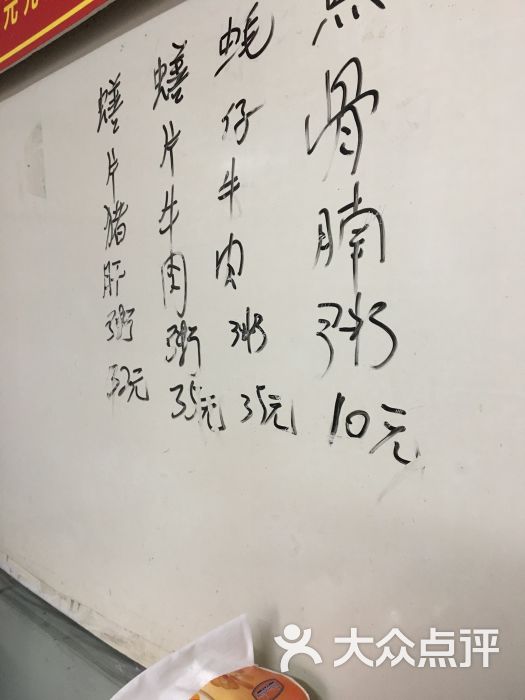 骨腩粥10元
蚝仔牛肉粥35元
蟮片牛肉粥35元
蟮片猪肝粥32元
大众点评